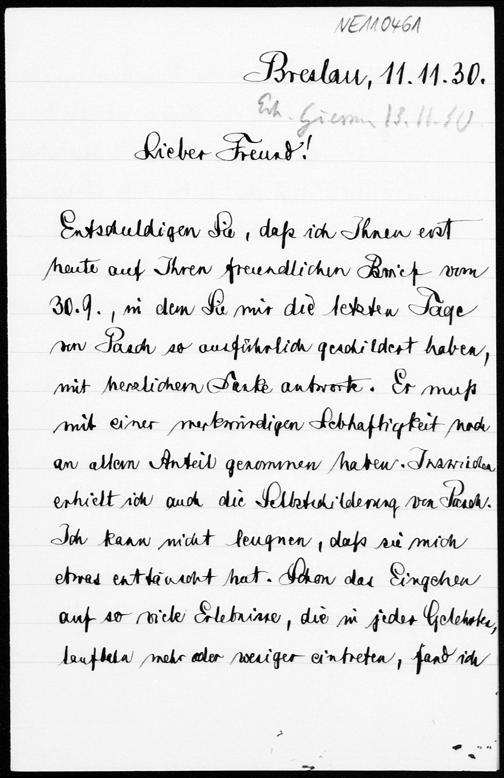 NE110461
Breslau, 11.11.30.
Erh. Giessen 13.11.30
Lieber Freund!
Entschuldigen Sie, daß ich Ihnen erst
heute auf Ihren freundlichen Brief vom
30.9., in dem Sie mir die letzten Tage
von Pasch so ausführlich geschildert haben,
mit herzlichem Danke antworte. Er muß
mit einer merkwürdigen Lebhaftigkeit noch
an allem Anteil genommen haben. Inzwischen
erhielt ich auch die Selbstschilderung von Pasch.
Ich kann nicht leugnen, daß sie mich
etwas enttäuscht hat. Schon das Eingehen
auf so viele Erlebnisse, die in jeder Gelehrten,
laufbahn mehr oder weniger eintreten, fand ich